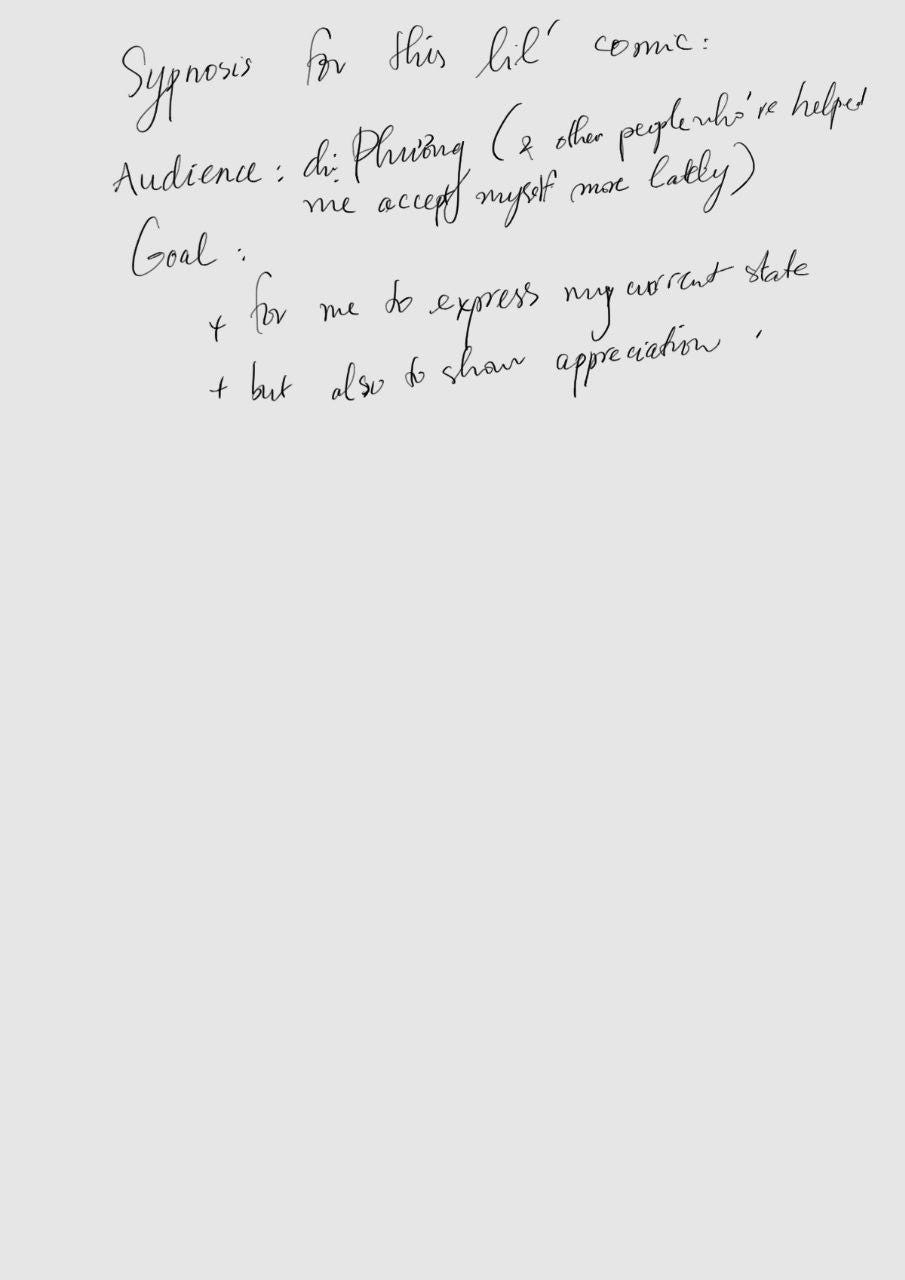 Sypnosis for this lil' comic:
Audience: chị Phương (& other people who've helped
me accept myself more lately)
Goal:
+ for me to express my current state
+ but also to show appreciation.